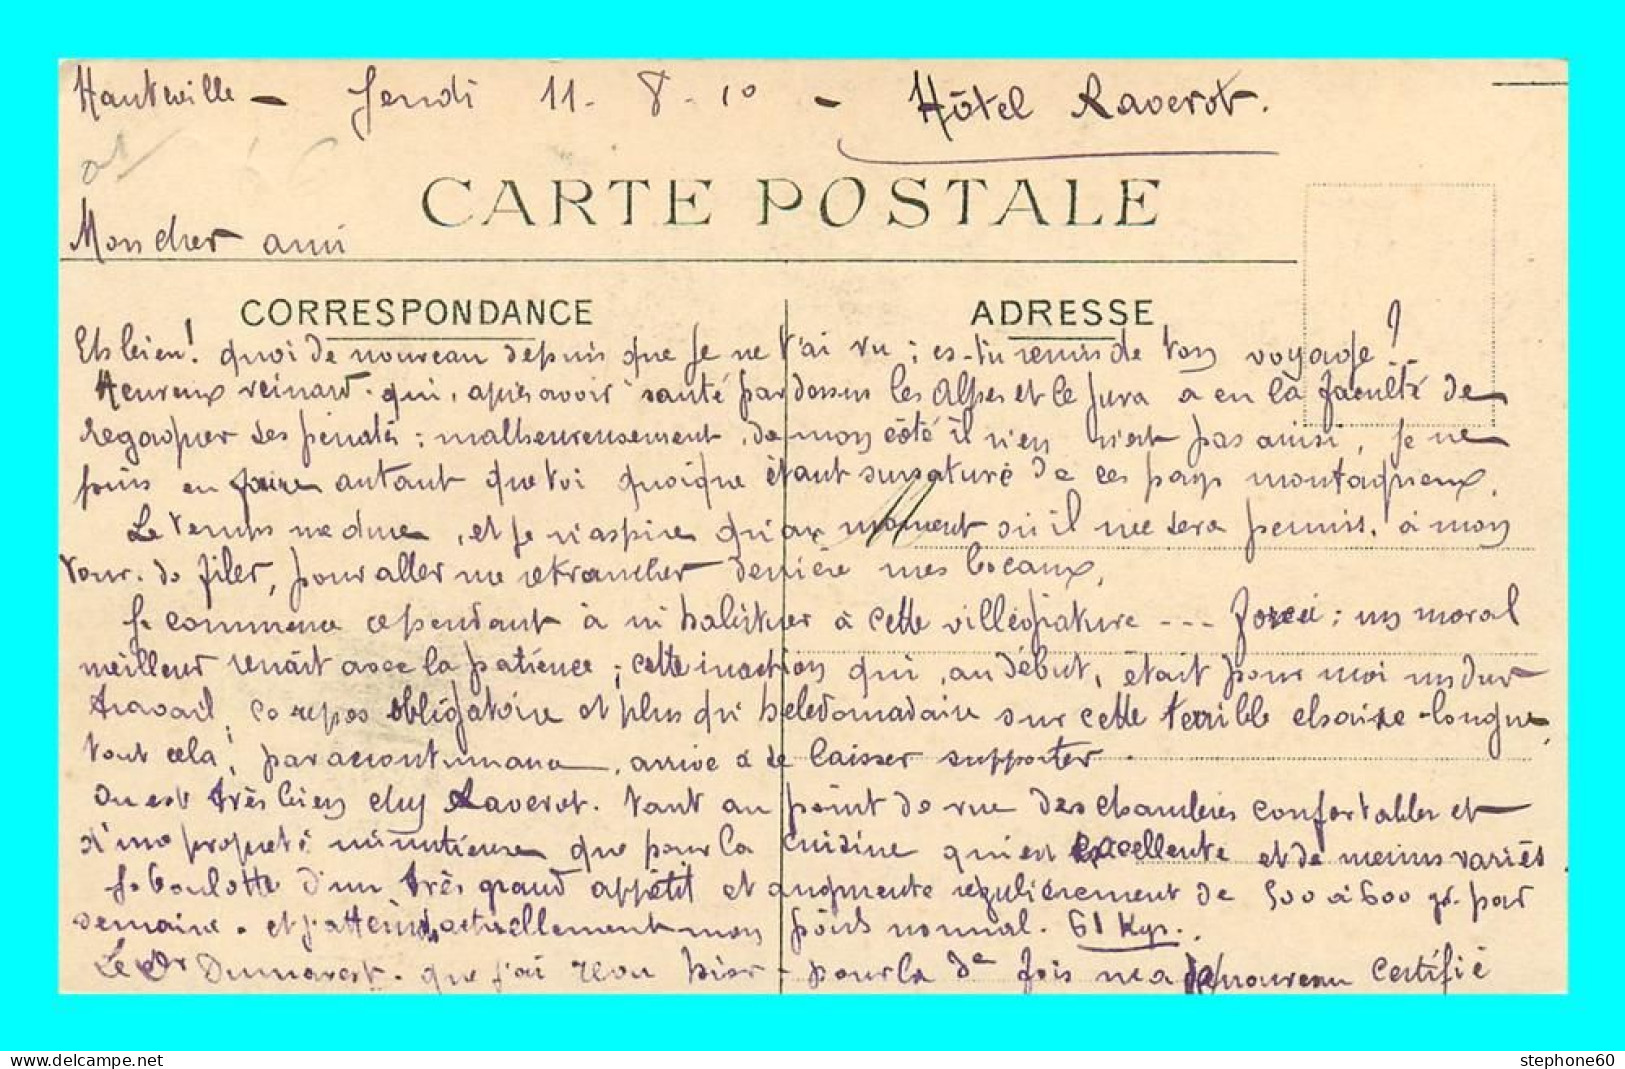 Hauteville - Jeudi 11-8-10 - Hôtel Raverot.
CARTE POSTALE
Mon cher ami
CORRESPONDANCE ADRESSE
Eh bien! quoi de nouveau depuis que je ne t'ai vu ; es-tu remis de ton voyage ?
Heureux veinard qui, après avoir sauté par dessus les Alpes et le Jura a eu la faculté de
regagner ses pénates : malheureusement, de mon côté il n'en n'est pas ainsi, je ne
puis en faire autant que toi quoique étant sursaturé de ces pays montagneux.
Le temps me dure, et je n'aspire qu'au moment où il me sera permis, à mon
tour de filer, pour aller me retrancher derrière mes bocaux,
Je commence cependant à m'habituer à cette villégiature --- forcée : un moral
meilleur renaît avec la patience ; cette inaction qui, au début, était pour moi un dur
travail, ce repos obligatoire et plus qu'hebdomadaire sur cette terrible chaise-longue,
tout cela, par accoutumance, arrive à se laisser supporter.
On est très bien chez Raverot. tant au point de vue des chambres confortables et
d'une propreté minutieuse que pour la cuisine qui est excellente et de menus variés
Je boulotte d'un très grand appétit et augmente régulièrement de 500 à 600 gr. par
semaine. et j'atteins actuellement mon poids normal. 61 Kgs.
Le Dr Dumarest - que j'ai revu hier - pour la 2e fois m'a de nouveau certifié
stephone60